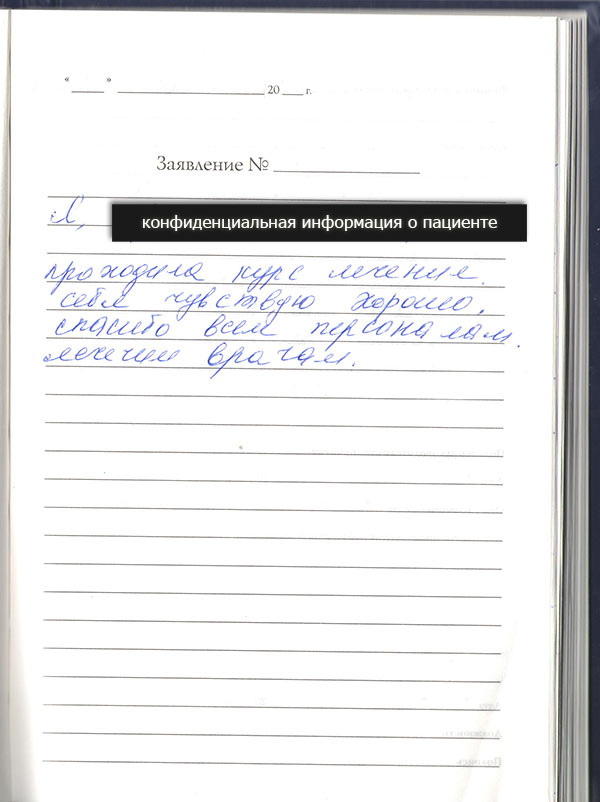 "___" ____________ 20 ___ г.
Заявление № ____________
Я,
конфиденциальная информация о пациенте
проходила курс лечения.
себя чувствую хорошо.
спасибо всем персоналам.
лечения врачам.